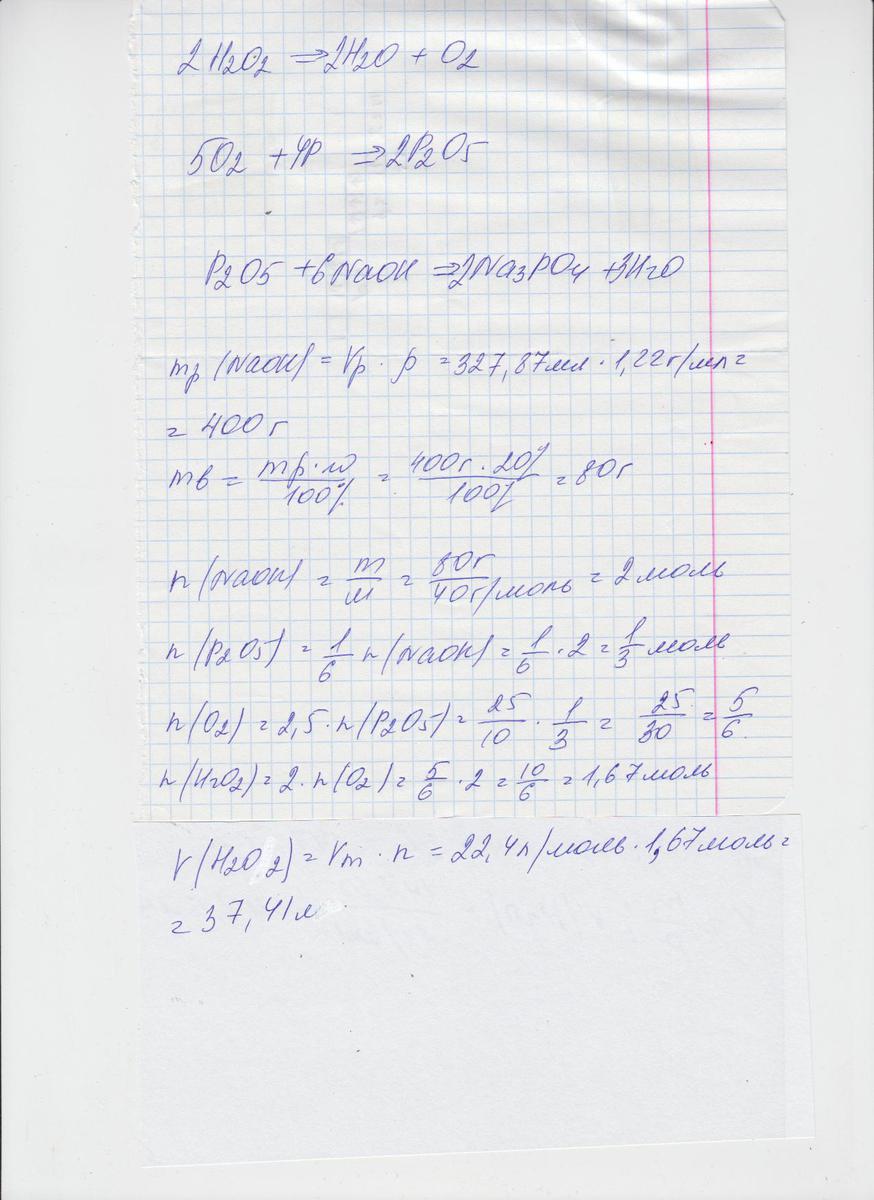 2H2O2 ⇒ 2H2O + O2
5O2 + 4P ⇒ 2P2O5
P2O5 + 6NaOH ⇒ 2Na3PO4 + 3H2O
mр (NaOH) = Vр · ρ = 327,87мл · 1,22г/мл =
= 400г
mв = mр·ω/100% = 400г · 20%/100% = 80г
n (NaOH) = m/M = 80г/40г/моль = 2 моль
n (P2O5) = 1/6 n (NaOH) = 1/6 · 2 = 1/3 моль
n (O2) = 2,5 · n (P2O5) = 25/10 · 1/3 = 25/30 = 5/6
n (H2O2) = 2 · n (O2) = 5/6 · 2 = 10/6 = 1,67 моль
V (H2O2) = Vm · n = 22,4л/моль · 1,67 моль =
= 37,41л